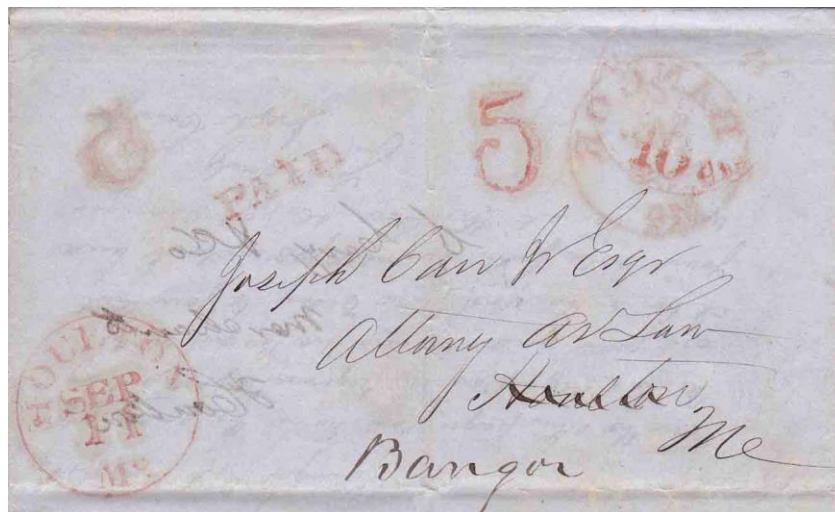 5
PAID
5
10
Joseph Carr Jr Esqr
Attorny at Law
Houlton
Me
Bangor
HOULTON
SEP
11
Me